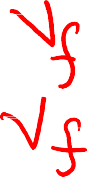 Vf
Vf